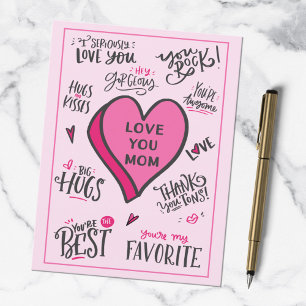 I SERIOUSLY
LOVE YOU
YOU
ROCK!
HEY
GORGEOUS
HUGS
AND
KISSES
YOU'RE
Awesome
LOVE
YOU
MOM
LOVE
BIG
HUGS
THANK
YOU TONS!
YOU'RE
THE
BEST
you're my
FAVORITE